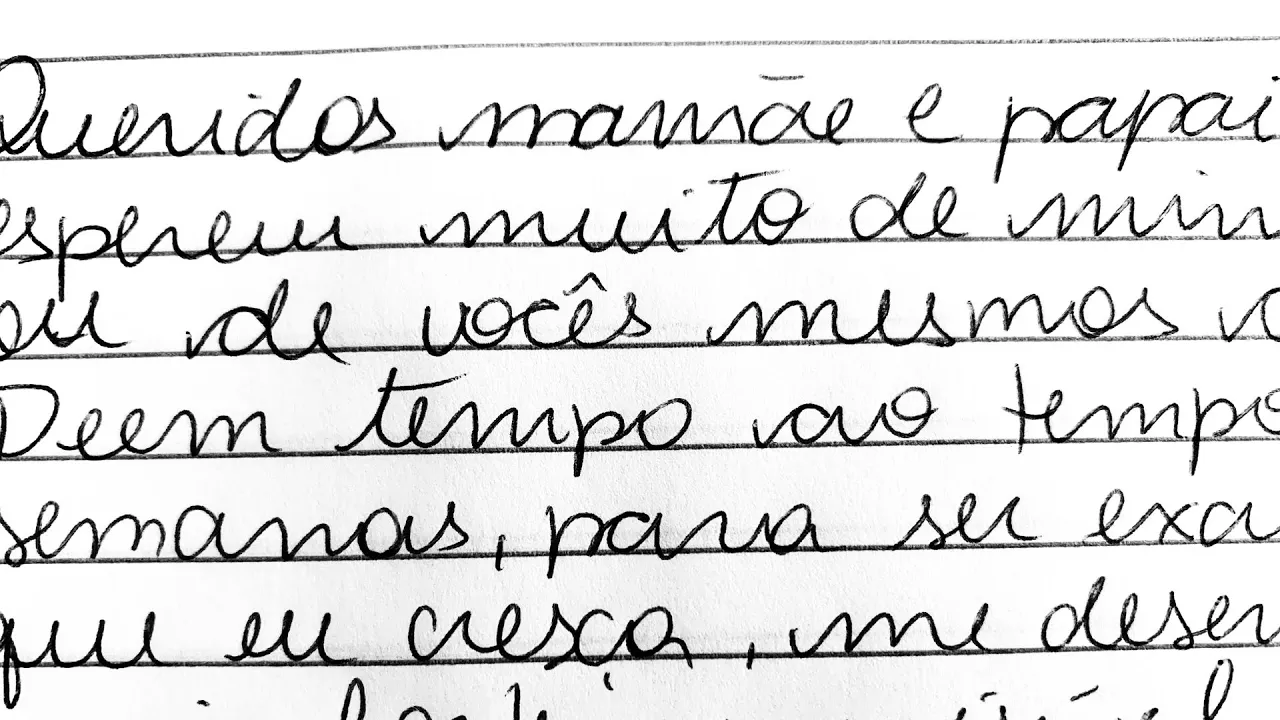 Queridos mamãe e papai
esperem muito de mim
ou de vocês mesmos
Deem tempo ao tempo
semanas, para ser exa
que eu cresça, me desen